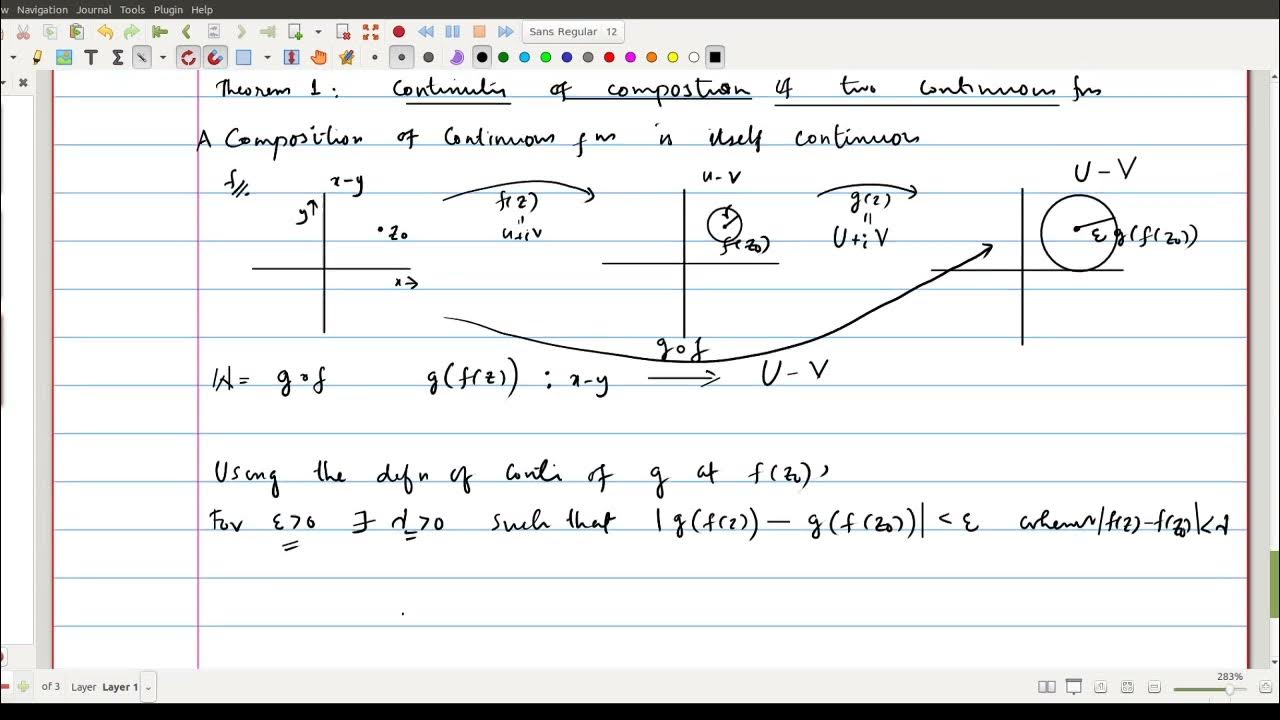 w Navigation Journal Tools Plugin Help
Sans Regular 12
Theorem 1: Continuity of composition of two continuous fns
A Composition of Continuous fns is itself continuous
x-y u-v U-V
y f(z) g(z)
z0 u+iv f(z0) U+iV ε g(f(z0))
x
g∘f
g∘f g(f(z)) : x-y → U-V
Using the defn of conti of g at f(z0),
For ε>0 ∃ >0 such that |g(f(z)) - g(f(z0))| < ε |f(z)-f(z0)|<
of 3 Layer Layer 1 283%